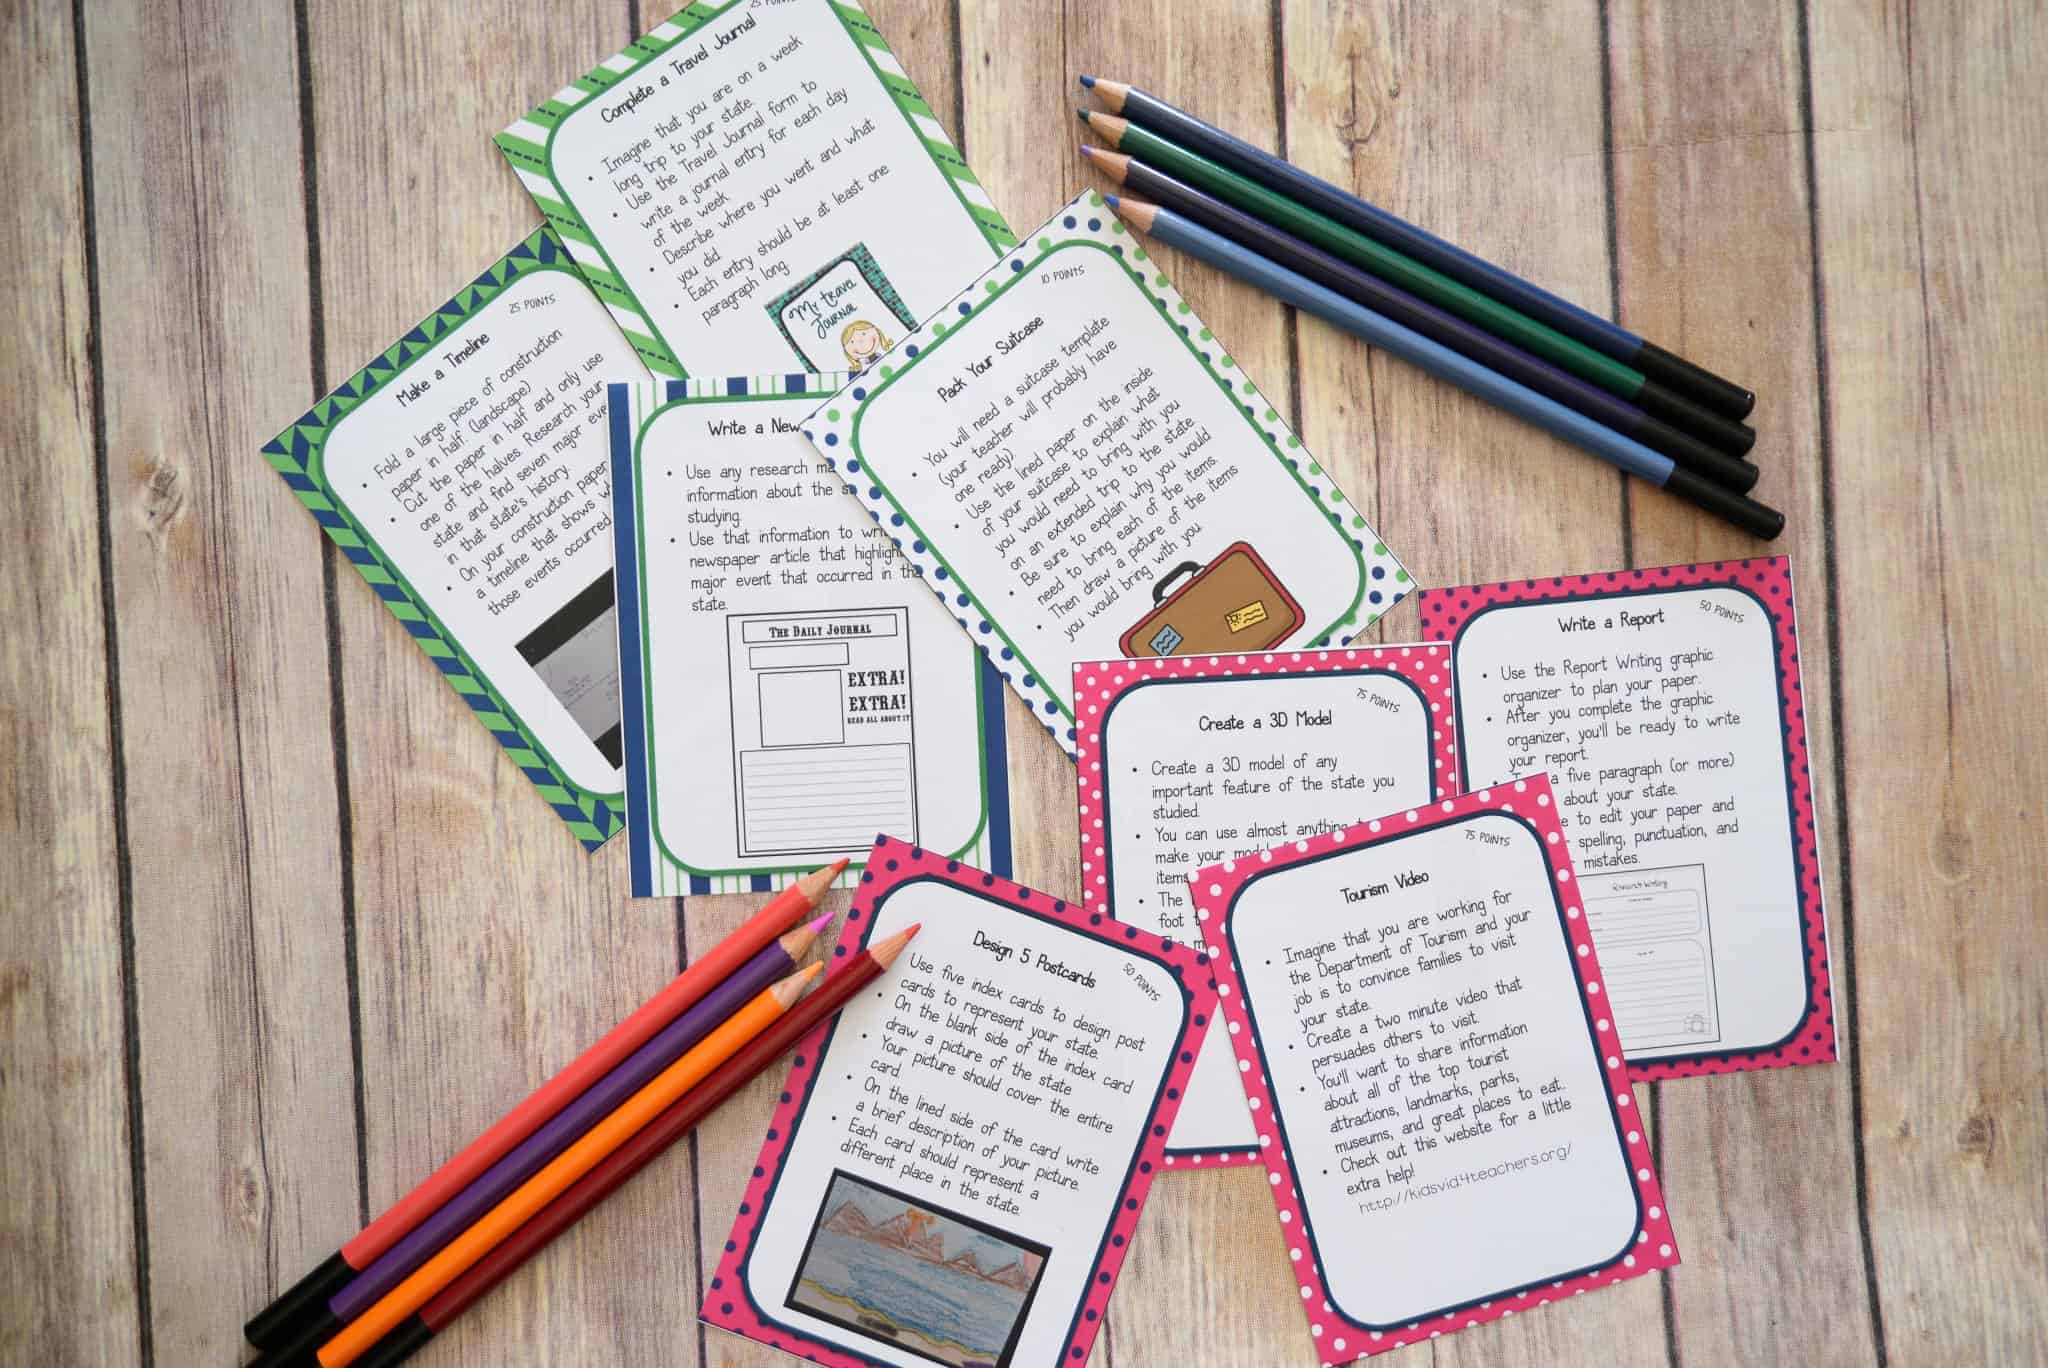 25 POINTS
Complete a Travel Journal
Imagine that you are on a week
long trip to your state.
Use the Travel Journal form to
write a journal entry for each day
of the week.
Describe where you went and what
you did.
Each entry should be at least one
paragraph long.
My travel
Journal
25 POINTS
Make a Timeline
Fold a large piece of construction
paper in half. (landscape)
Cut the paper in half and only use
one of the halves. Research your
state and find seven major
in that state's history.
On your construction paper
a timeline that shows
those events occurred
Write a
Use any research
information about the
studying.
Use that information to
newspaper article that
major event that occurred in the
state.
THE DAILY JOURNAL
EXTRA!
EXTRA!
READ ALL ABOUT IT
10 POINTS
Pack Your Suitcase
You will need a suitcase template
(your teacher will probably have
one ready)
Use the lined paper on the inside
of your suitcase to explain what
you would need to bring with you
on an extended trip to the state.
Be sure to explain why you would
need to bring each of the items.
Then draw a picture of the items
you would bring with you.
50 POINTS
Write a Report
Use the Report Writing graphic
organizer to plan your paper.
After you complete the graphic
organizer, you'll be ready to write
your report.
a five paragraph (or more)
about your state.
to edit your paper and
spelling, punctuation, and
mistakes.
75 POINTS
Create a 3D Model
Create a 3D model of any
important feature of the state you
studied.
You can use almost anything
make your
items
The
foot
75 POINTS
Tourism Video
Imagine that you are working for
the Department of Tourism and your
job is to convince families to visit
your state.
Create a two minute video that
persuades others to visit.
You'll want to share information
about all of the top tourist
attractions, landmarks, parks,
museums, and great places to eat.
Check out this website for a little
extra help!
http://kidsvid.4teachers.org/
50 POINTS
Design 5 Postcards
Use five index cards to design post
cards to represent your state.
On the blank side of the index card
draw a picture of the state
Your picture should cover the entire
card.
On the lined side of the card write
a brief description of your picture.
Each card should represent a
different place in the state.